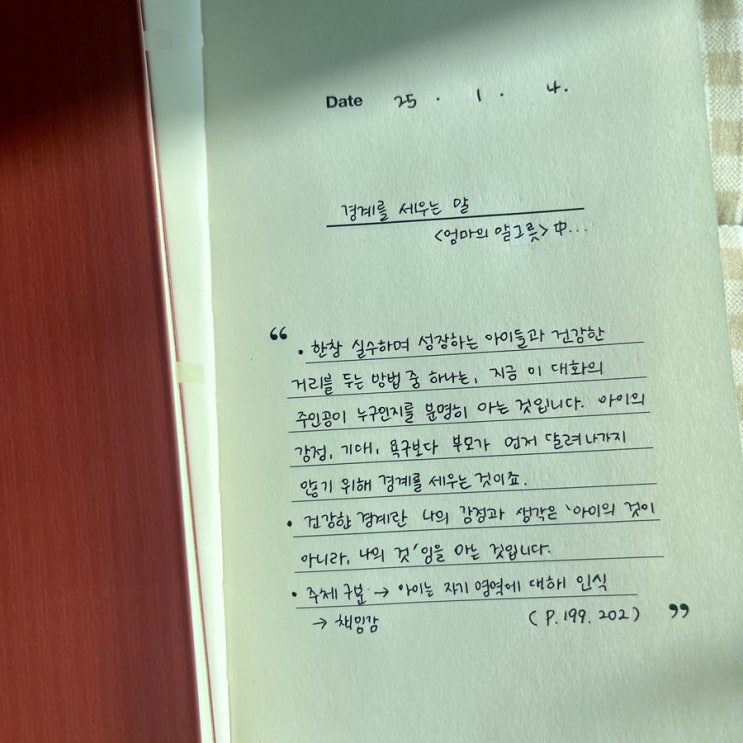 Date 25 . 1 . 4.
경계를 세우는 말
<엄마의 말그릇> 中...
“
• 한창 실수하며 성장하는 아이들과 건강한
거리를 두는 방법 중 하나는, 지금 이 대화의
주인공이 누구인지를 분명히 아는 것입니다. 아이의
감정, 기대, 욕구보다 부모가 먼저 달려나가지
않기 위해 경계를 세우는 것이죠.
• 건강한 경계란 나의 감정과 생각은 '아이의 것이
아니라, 나의 것'임을 아는 것입니다.
• 주체 구분 → 아이는 자기 영역에 대해 인식
→ 책임감 (P. 199. 202)
”